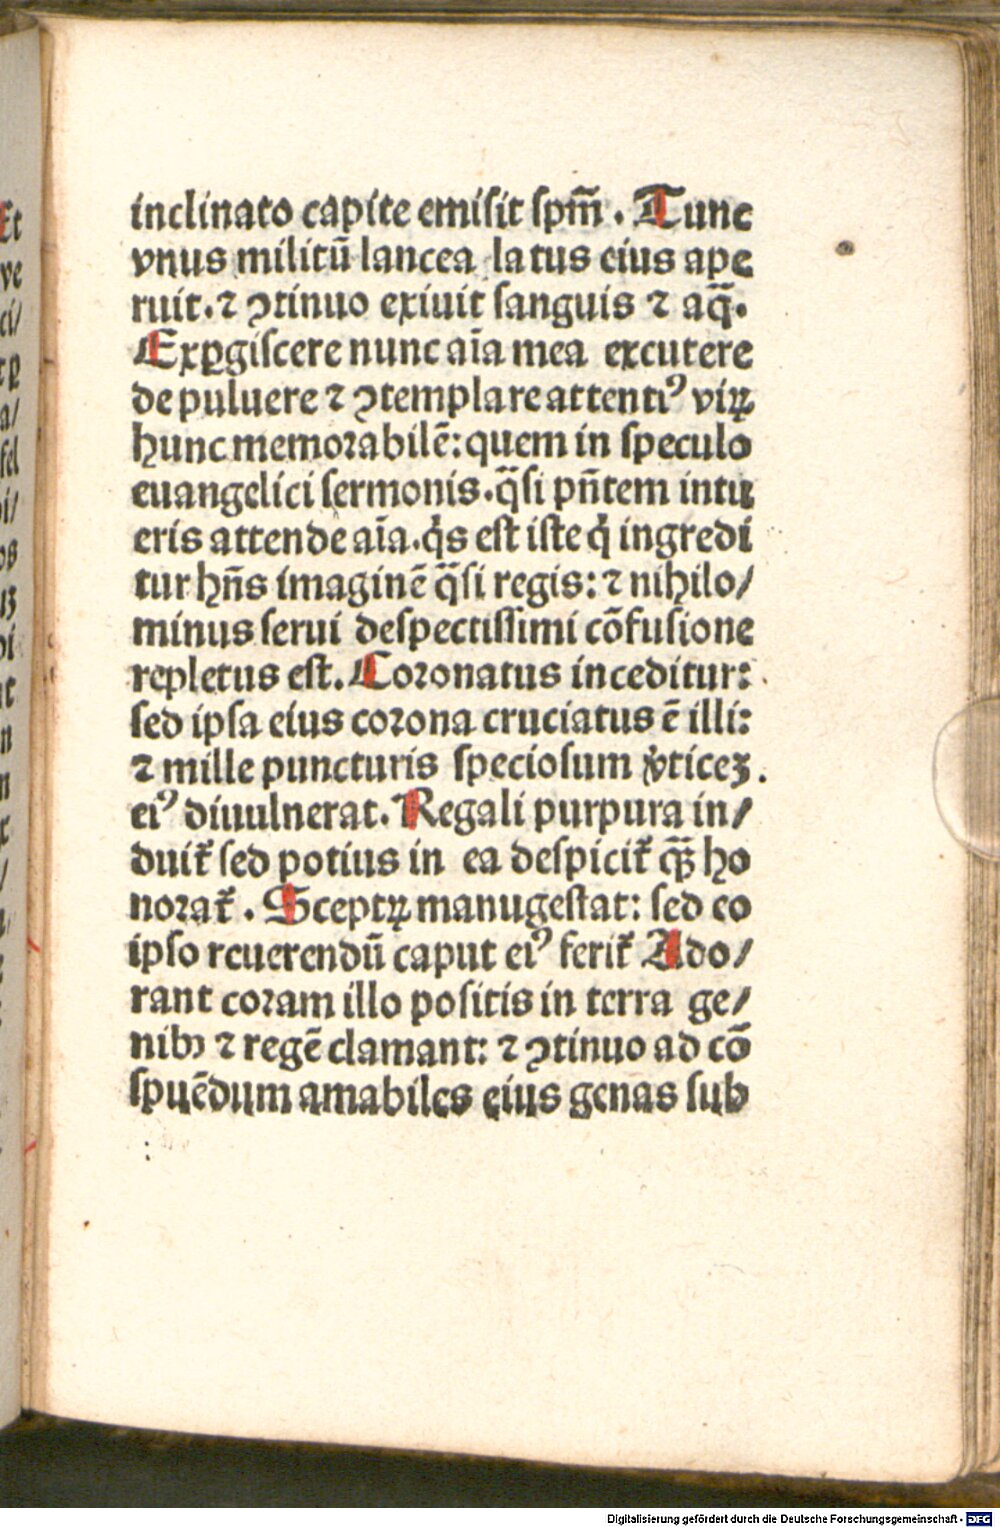 inclinato capite emisit spm̅. Tunc
vnus militū lancea latus eius ape
ruit. ⁊ ꝯtinuo exiuit sanguis ⁊ aq̄.
Exꝑgiscere nunc aīa mea excutere
de puluere ⁊ ꝯtemplare attentiꝰ viꝝ
hunc memorabilē: quem in speculo
euangelici sermonis. q̄si pn̄tem intu
eris attende aīa. q̇s est iste q̇ ingredi
tur hn̄s imaginē q̄si regis: ⁊ nihilo/
minus serui despectissimi cōfusione
repletus est. Coronatus inceditur:
sed ipsa eius corona cruciatus ē illi:
⁊ mille puncturis speciosum v̓ticeꝫ.
eiꝰ diuulnerat. Regali purpura in/
duit̄ sed potius in ea despicit̄ q̄ꝫ ho
norat̄. Sceptꝝ manu gestat: sed eo
ipso reuerendū caput eiꝰ ferit̄ Ado/
rant coram illo positis in terra ge/
nibꝰ ⁊ regē clamant: ⁊ ꝯtinuo ad cō
spuēdum amabiles eius genas sub
Et
ve
ci/
a/
fel
Digitalisierung gefördert durch die Deutsche Forschungsgemeinschaft - DFG